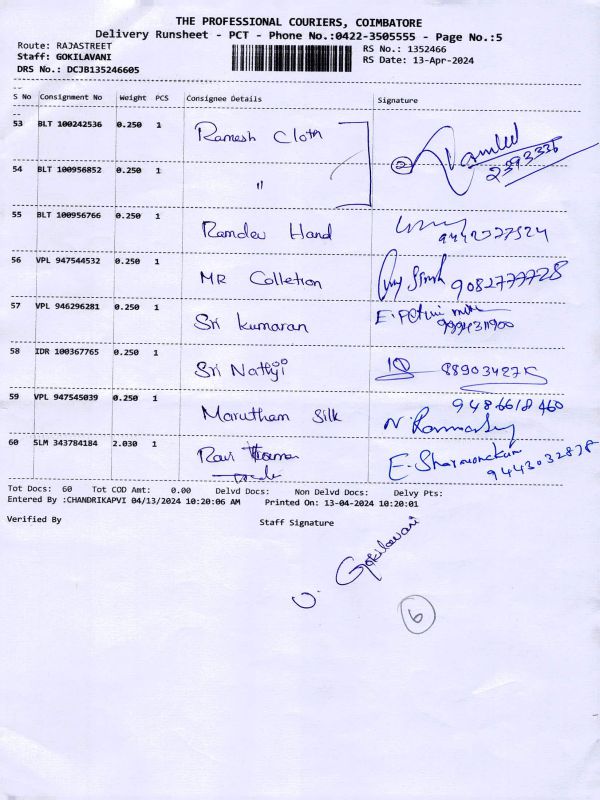 THE PROFESSIONAL COURIERS, COIMBATORE
Delivery Runsheet - PCT - Phone No.:0422-3505555 - Page No.:5
Route: RAJASTREET
RS No.: 1352466
Staff: GOKILAVANI
RS Date: 13-Apr-2024
DRS No.: DCJB135246605
S No Consignment No Weight PCS Consignee Details Signature
53 BLT 100242536 0.250 1 Ramesh Cloth
2393336
54 BLT 100956852 0.250 1 "
②
55 BLT 100956766 0.250 1 Ramdev Hand
56 VPL 947544532 0.250 1 MR Colletion
57 VPL 946296281 0.250 1 Sri Kumaran
58 IDR 100367765 0.250 1 Sri Nattiji
59 VPL 947545039 0.250 1 Marutham Silk 9486618460
60 SLM 343784184 2.030 1 Ravi
9443032878
Tot Docs: 60 Tot COD Amt: 0.00 Delvd Docs: Non Delvd Docs: Delvy Pts:
Entered By :CHANDRIKAPVI 04/13/2024 10:20:06 AM Printed On: 13-04-2024 10:20:01
Verified By Staff Signature
Gokilavani
6